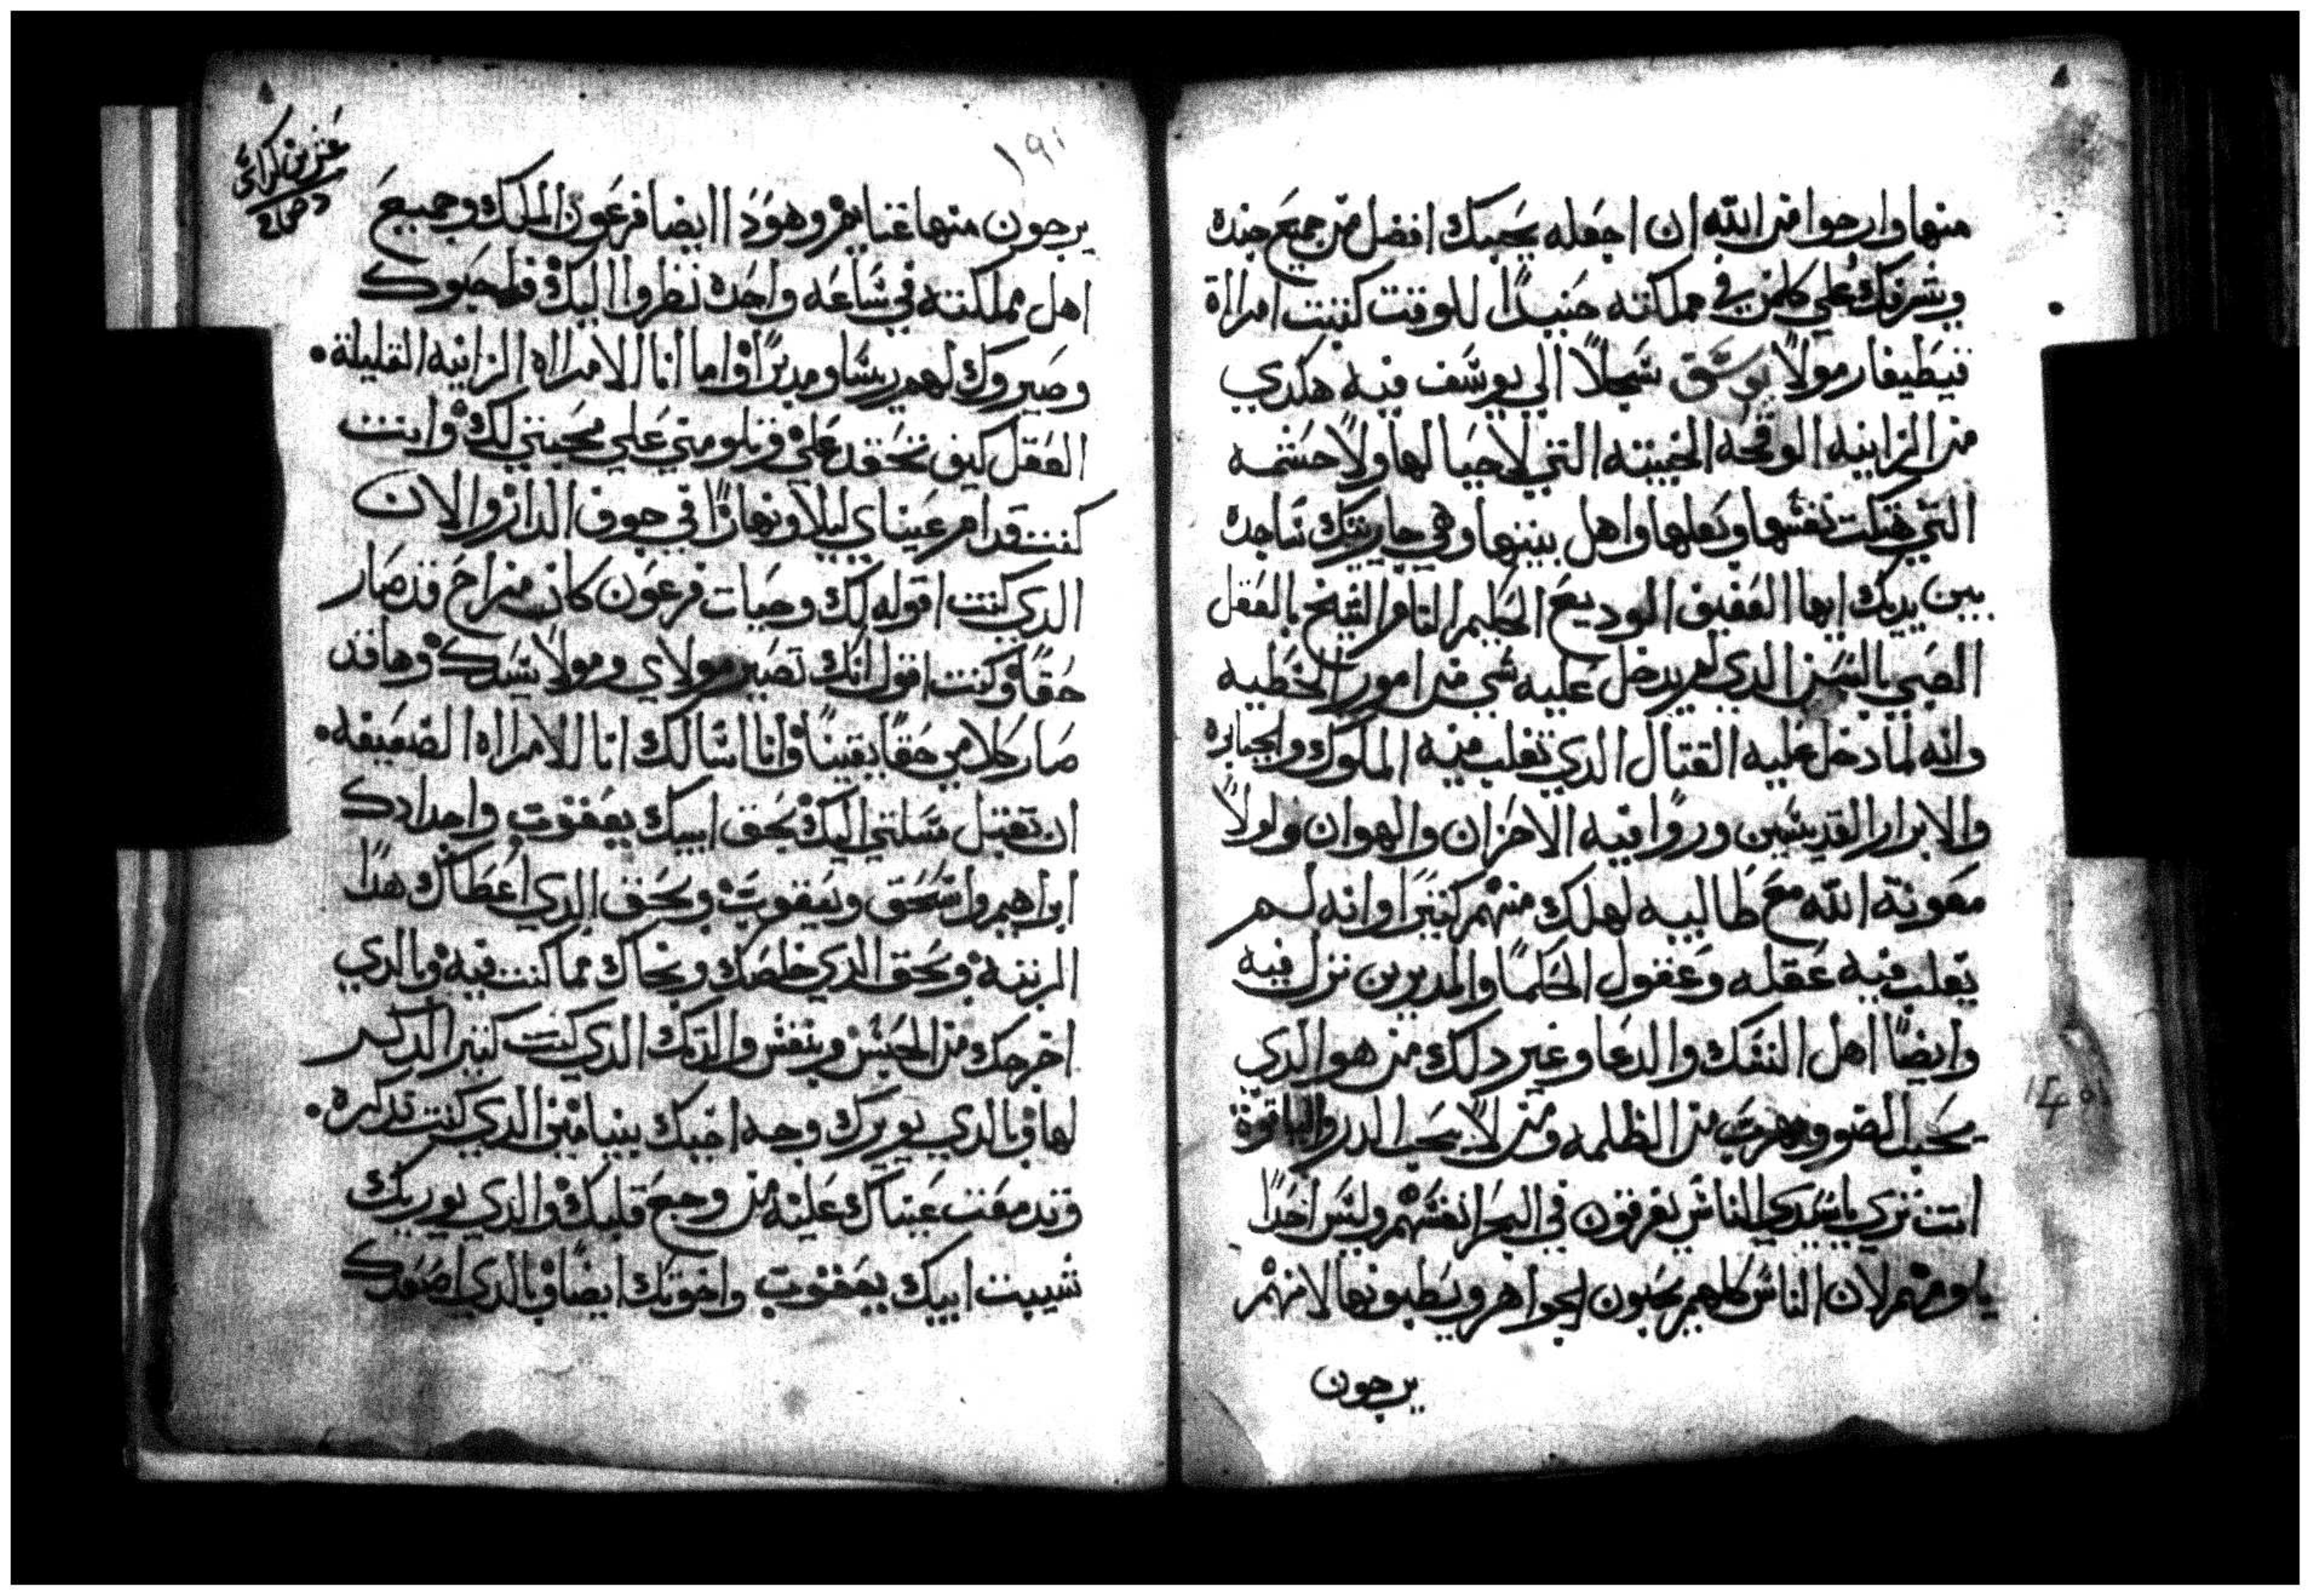 منها وارجوا من الله ان اجعله يحبك افضل من جميع جنده
ويشرفك علي كلمن في مملكته حنيدًا للوقت كتبت امراة
فيطيفار مولا يوسف سجلاً الي يوسف فيه هكدي
من الزانيه الوقحه الخبيته التي لا حيا لها ولا حشمه
التي هتكت نفسها وبعلها واهل بيتها وهي جاريتك ساجده
بين يديك ايها العفيف الوديع الحليم التام الشيخ بالعقل
الصبي بالسن الدي لم يدخل عليه شي من امور الخطيه
وانه لما دخل عليه القتال الدي تغلب منه الملوك والجبابره
والابرار القديسين وروا فيه الاحزان والهوان ولولا
معونة الله مع طالبيه لهلك منهم كتيرًا وانه لم
يغلب فيه عقله وعقول الحكما والمدبرين نزل فيه
وايضًا اهل النسك والدعا وغير دلك من هو الدي
يحب الضو ويهرب من الظلمه ومن لا يحب الدر والياقوتة
انت تري ياسيدي الناس يغرقون في البحر انفسهم وليس احدًا
يلومهم لان الناس كلهم يحبون الجواهر ويطلبونها لانهم
يرجون
١٩١
يرجون منها غناهم وهودا ايضا فرعون الملك وجميع
اهل مملكته في ساعه واحده نظروا اليك فاحبوك
وصيروك لهم ريسًا ومدبرًا واما انا الامراه الزانيه القليلة
العقل كيف تحقد علي وتلومني علي محبتي لك وانت
كنت قدام عيناي ليلا ونهارًا في جوف الدار والان
الدي كنت اقوله لك وحيات فرعون كان مزاح قد صار
حقًا وكنت اقول انك تصير مولاي ومولا سيدك وها قد
صار كلامي حقًا يقينًا وانا اسالك انا الامراه الضعيفه
ان تقبل مسلتي اليك بحق ابيك يعقوب واجدادك
ابراهيم واسحق ويعقوب وبحق الدي اعطاك هدا
الرتبه وبحق الدي خلصك ونجاك مما كنت فيه وبالدي
اخرجك من الحبس وبنفس والدتك الدي كنت كتير الدكر
لها وبالدي يوريك وجه اخيك بنيامين الدي كنت تدكره
وتدمعت عيناك عليه من وجع قلبك والدي يوريك
شيبت ابيك يعقوب واخوتك ايضًا وبالدي اصعدك